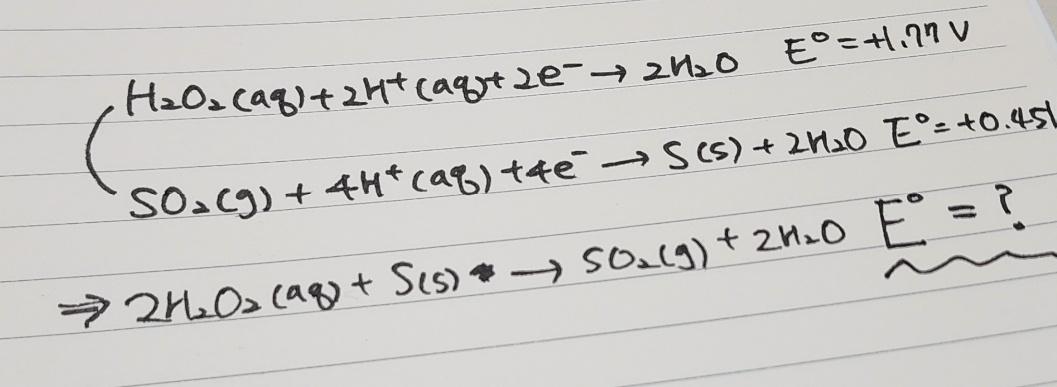 H₂O₂(aq) + 2H⁺(aq) + 2e⁻ → 2H₂O E° = +1.77 V
SO₂(g) + 4H⁺(aq) + 4e⁻ → S(s) + 2H₂O E° = +0.45V
⇒ 2H₂O₂(aq) + S(s) → SO₂(g) + 2H₂O E° = ?